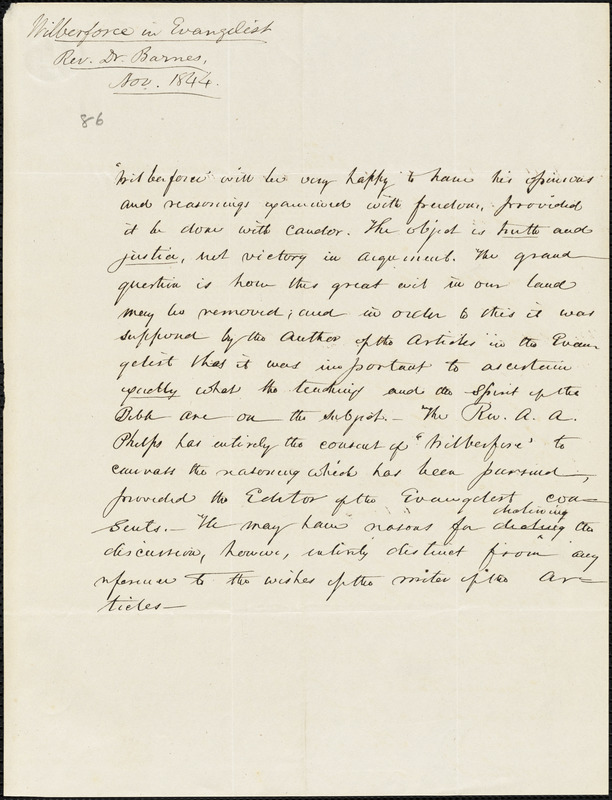 Wilberforce in Evangelist
Rev. Dr. Barnes,
Nov. 1844.
86
"Wilberforce" will be very happy to have his opinions
and reasonings examined with freedom, provided
it be done with candor. The object is truth and
justice, not victory in argument. The grand
question is how this great evil in our land
may be removed; and in order to this it was
supposed by the author of the articles in the Evan-
gelist that it was important to ascertain
exactly what the teaching and the spirit of the
Bible are on the subject. – The Rev. A. A.
Phelps has entirely the consent of "Wilberforce" to
canvass the reasoning which has been pursued,
provided the Editor of the Evangelist con-
sents. – He may have reasons for the
declining
discussion, however, entirely distinct from any
reference to the wishes of the writer of the Ar-
ticles –